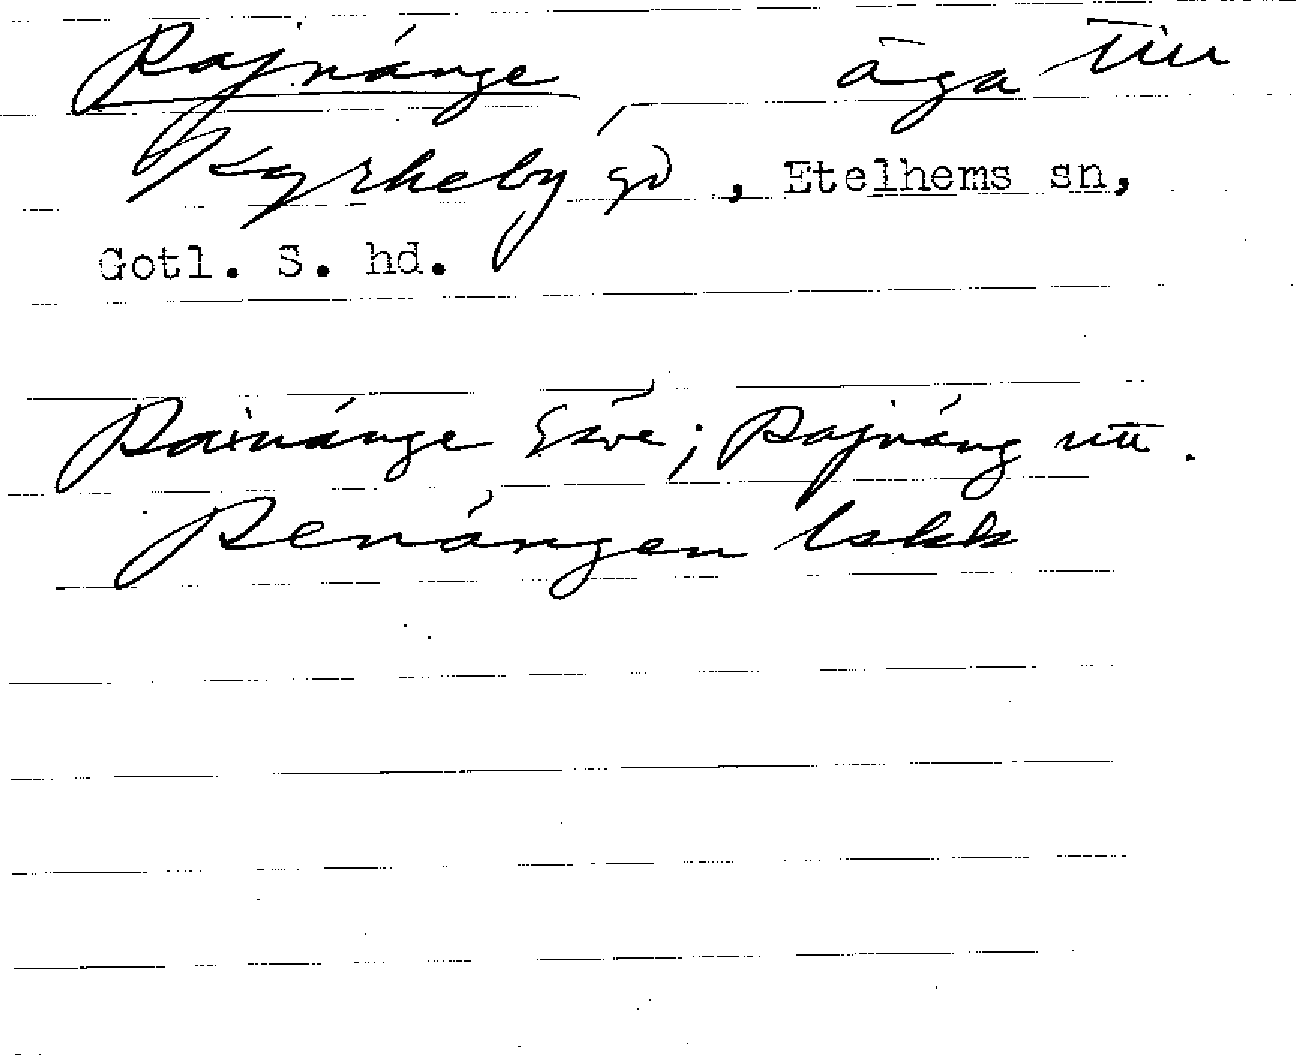 Rajnánge äga till
Kyrkeby gd, Etelhems sn,
Gotl. S. hd.
Rainánge Säve; Rajnáng utt.
Renángen lskk